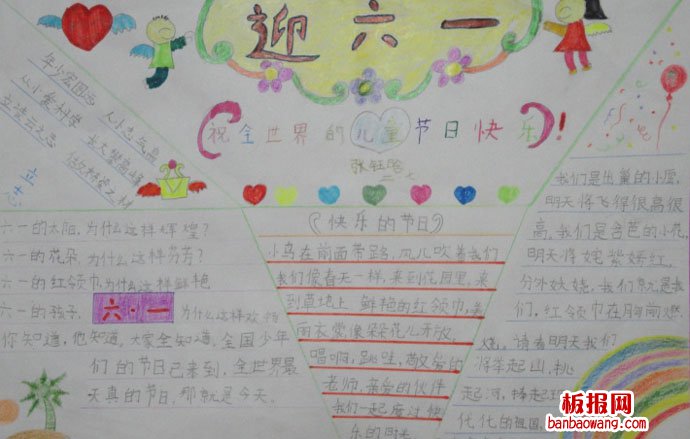 迎六一
祝全世界的儿童节日快乐!
年少宏图志
从小爱科学
立凌云之志
从小志气高
长大攀高峰
立志
六一的太阳,为什么这样辉煌?
六一的花朵,为什么这样芬芳?
六一的红领巾,为什么这样鲜艳
六一的孩子,六·一为什么这样欢
你知道,他知道,大家全知道,全国少年
们的节日已来到,全世界最
天真的节日,那就是今天。
《快乐的节日》
小鸟在前面带路,风儿吹着我们
我们像春天一样,来到花园里,来
到草地上,鲜艳的红领巾,美
丽衣裳像朵朵花儿开放,
唱啊,跳哇,敬爱的
老师,亲爱的伙伴
我们一起度过快
乐的
我们是出巢的小鹰,
明天将飞得很高很
高,我们是含苞的小花,
明天将姹紫嫣红,
分外妖娆。我们就是我
们,红领巾在胸前燃
烧,请看明天我们
将举起山,挑
起河,捧起
代化的祖国
板报网
banbaowang.com